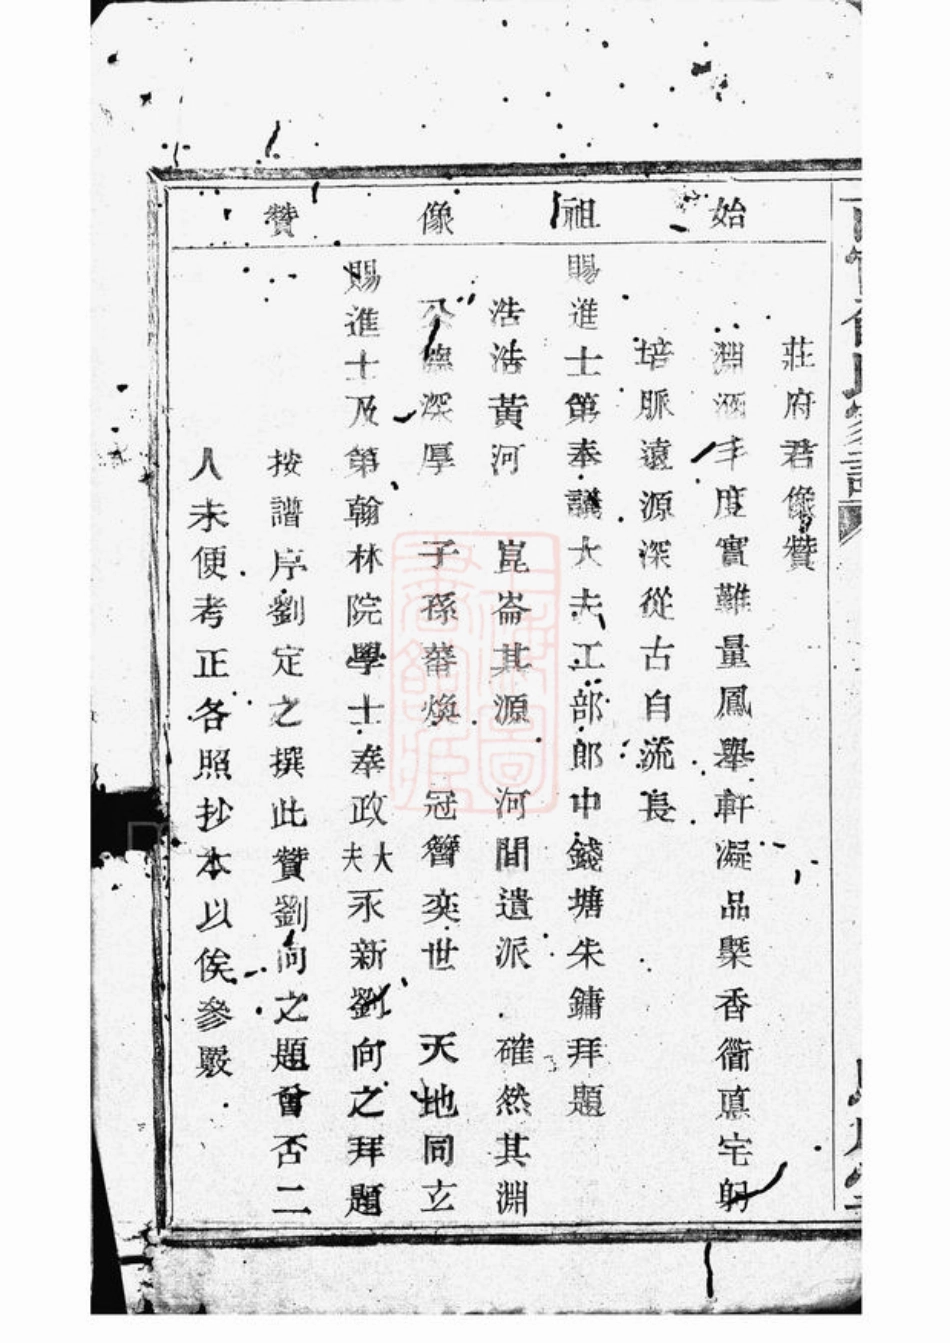 始祖像贊
莊府君像贊
淵涵丰度實難量鳳舉軒凝品槩香衢惪宅躬
培脈遠源深從古自流長
賜進士第奉議大夫工部郎中錢塘朱鏞拜題
浩浩黃河 崑崙其源 河間遺派 確然其淵
公德深厚 子孫蕃煥 冠簪奕世 天地同玄
賜進士及第翰林院學士奉政大夫永新劉向之拜題
按譜序劉定之撰此贊劉向之題曾否二
人未便考正各照抄本以俟參覈